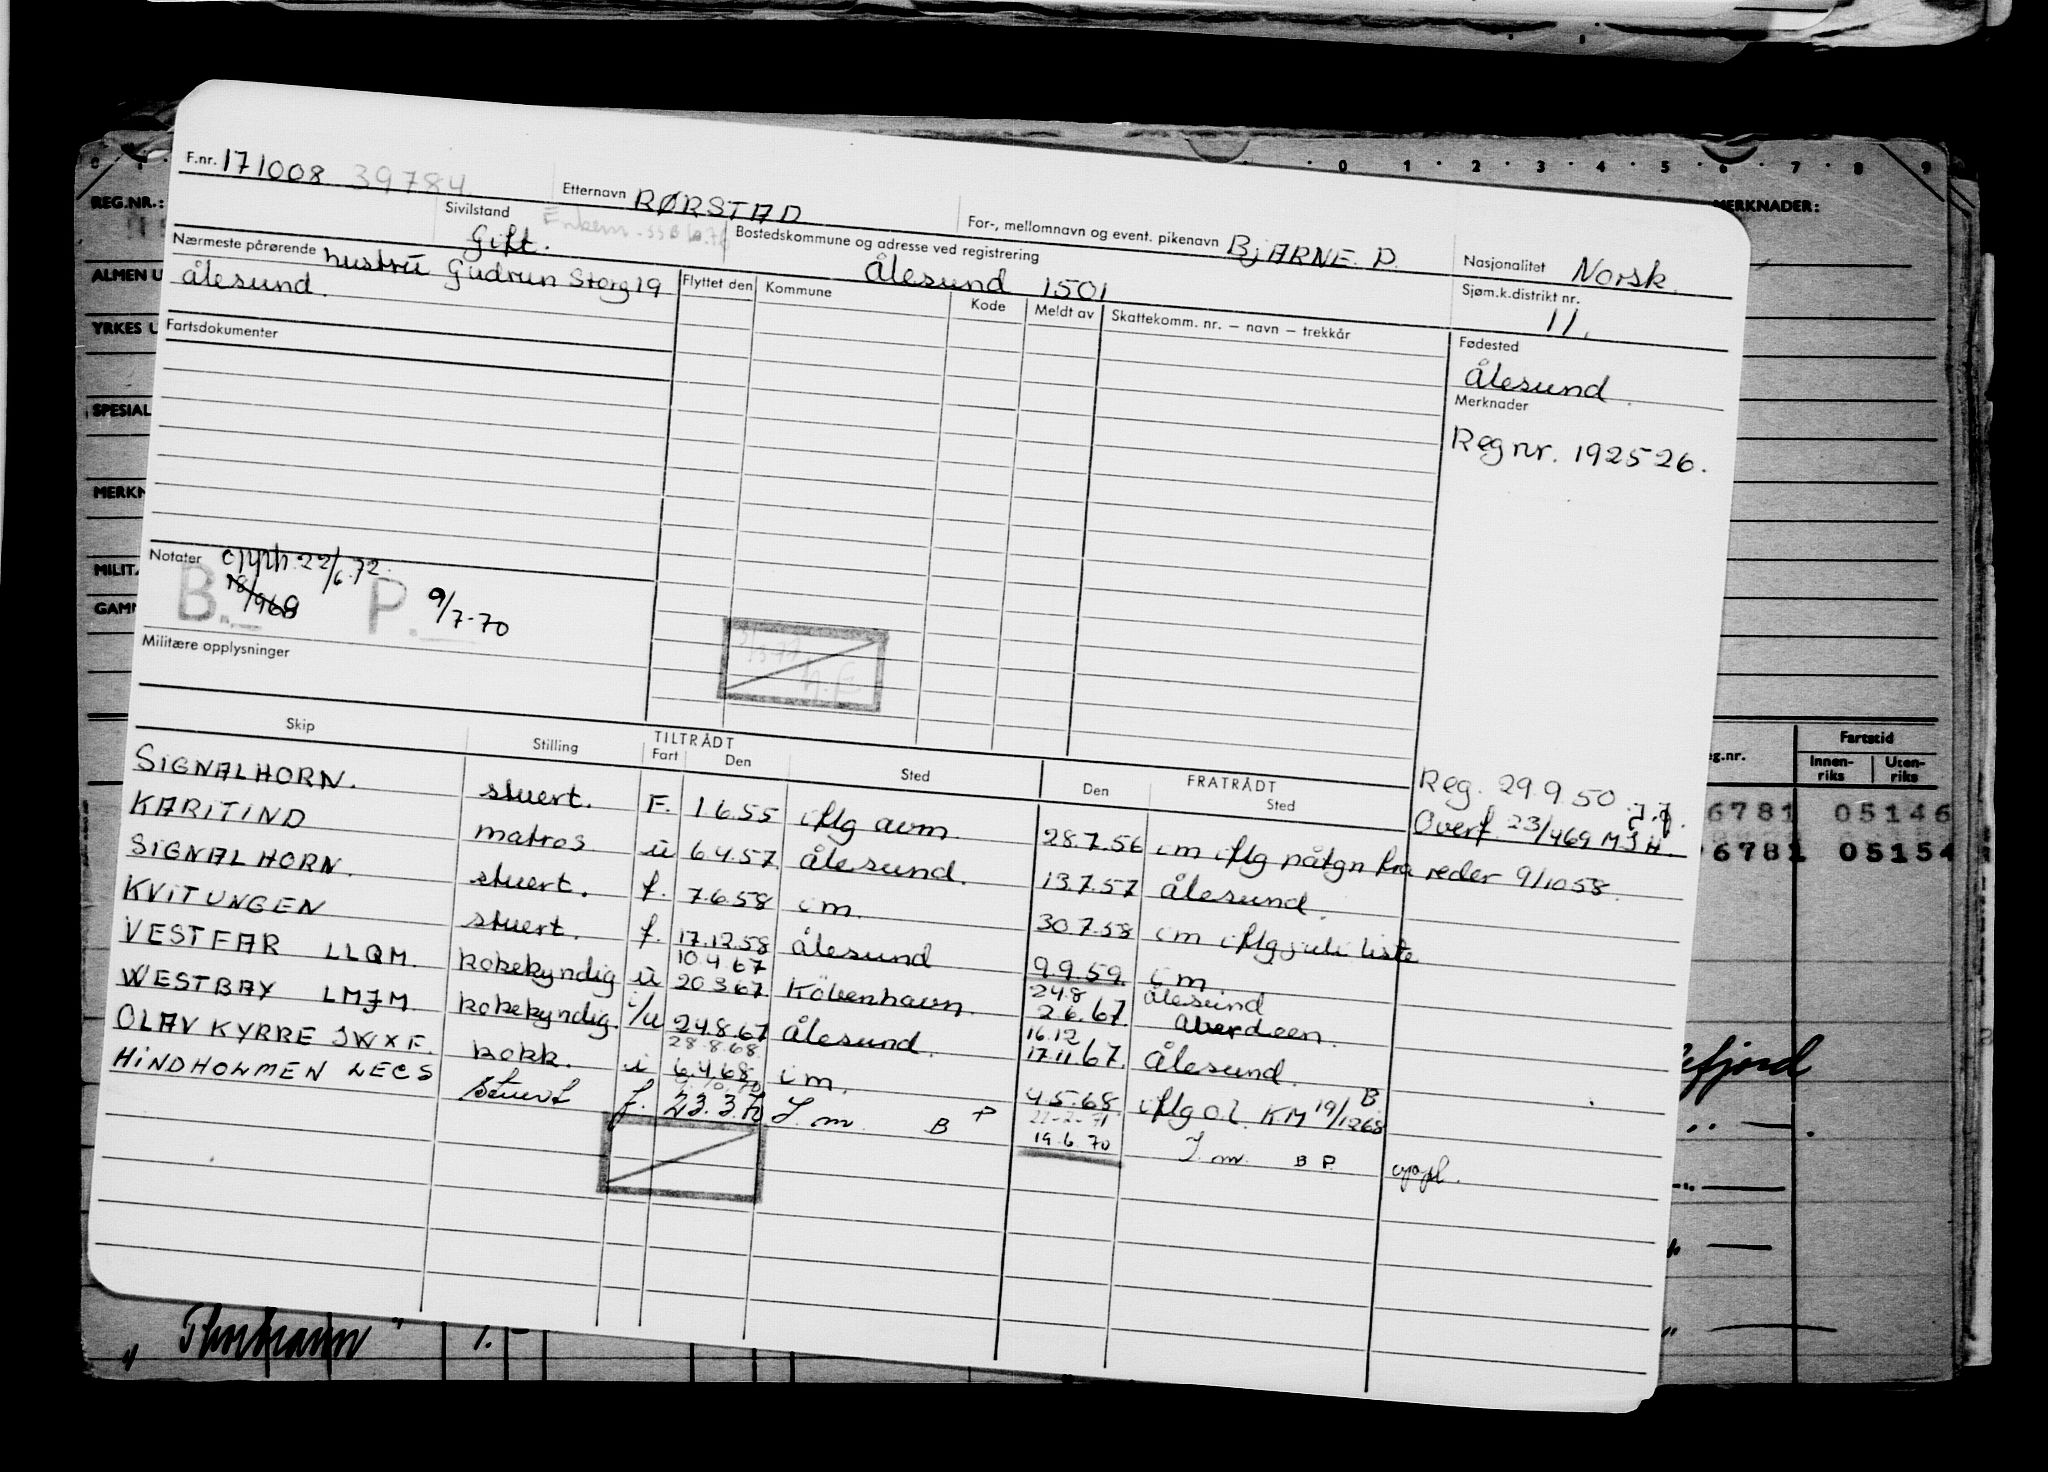 0 1 2 3 4 5 6 7 8 9
REG.NR.:
MERKNADER:
F.nr. 171008 39784 Etternavn RØRSTAD For-, mellomnavn og event. pikenavn BJARNE. P. Nasjonalitet Norsk.
Sivilstand Gift. Bostedskommune og adresse ved registrering Ålesund 1501 Sjøm.k.distrikt nr. 11.
Nærmeste pårørende hustru Gudrun Storg 19
ålesund.
Flyttet den Kommune Kode Meldt av Skattekomm. nr. – navn – trekkår
Fødested
Ålesund.
Fartsdokumenter
Merknader
Reg nr. 192526.
ALMEN U
YRKES U
SPESIAL
MERKN
MILIT
GAMM
Notater opph. 22/6.72.
B. 18/969 P. 9/7-70
Militære opplysninger
Reg. 29.9.50 J.J.
Overf 23/469 MJH.
Skip Stilling TILTRÅDT Fart Den Sted FRATRÅDT Den Sted
SIGNALHORN. stuert. F. 1.6.55 iflg avm 28.7.56 i m iflg påtgn fra reder 9/10 58.
KARITIND matros u 6.4.57 ålesund. 13.7.57 ålesund.
SIGNALHORN. stuert. f. 7.6.58 i m. 30.7.58 i m iflg juli liste
KVITUNGEN stuert. f. 17.12.58 ålesund 9.9.59. i m
VESTFAR LLQM. kokekyndig u 10.4.67 20367 Köbenhavn 24.8 2.6.67. ålesund Aberdeen.
WESTBAY LMJM kokekyndig i/u 24.8.67 ålesund. 16.12 17.11.67. ålesund.
OLAV KYRRE JWXF. kokk. i 28.8.68. 6.4.68 i m. 4.5.68. iflg o.l. KM 19/1268 B
HINDHOLMEN LECS stuert f. 23.3.70 I. m. B P 22-2-71 19.6.70 I. m. B P. oppl.
eg.nr. Fartstid
Innen-riks Uten-riks
6781 05146
6781 05154
efjord
" Thorhavn " 1. -